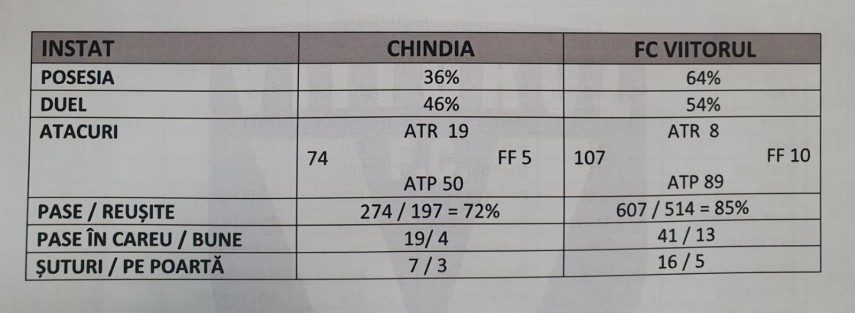 INSTAT CHINDIA FC VIITORUL
POSESIA 36% 64%
DUEL 46% 54%
ATACURI ATR 19 ATR 8
74 FF 5 107 FF 10
ATP 50 ATP 89
PASE / REUȘITE 274 / 197 = 72% 607 / 514 = 85%
PASE ÎN CAREU / BUNE 19/ 4 41 / 13
ȘUTURI / PE POARTĂ 7 / 3 16 / 5